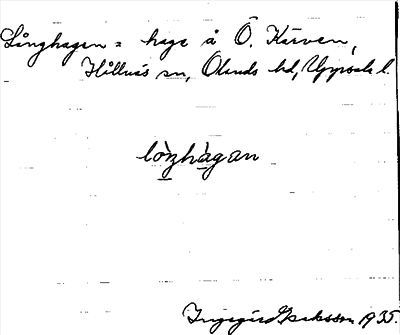 Långhagen = hage å Ö. Kärven,
Hållnäs sn, Olands hd, Uppsala l.
lo̠ŋhàgan
Ingegärd Isaksson 1935.